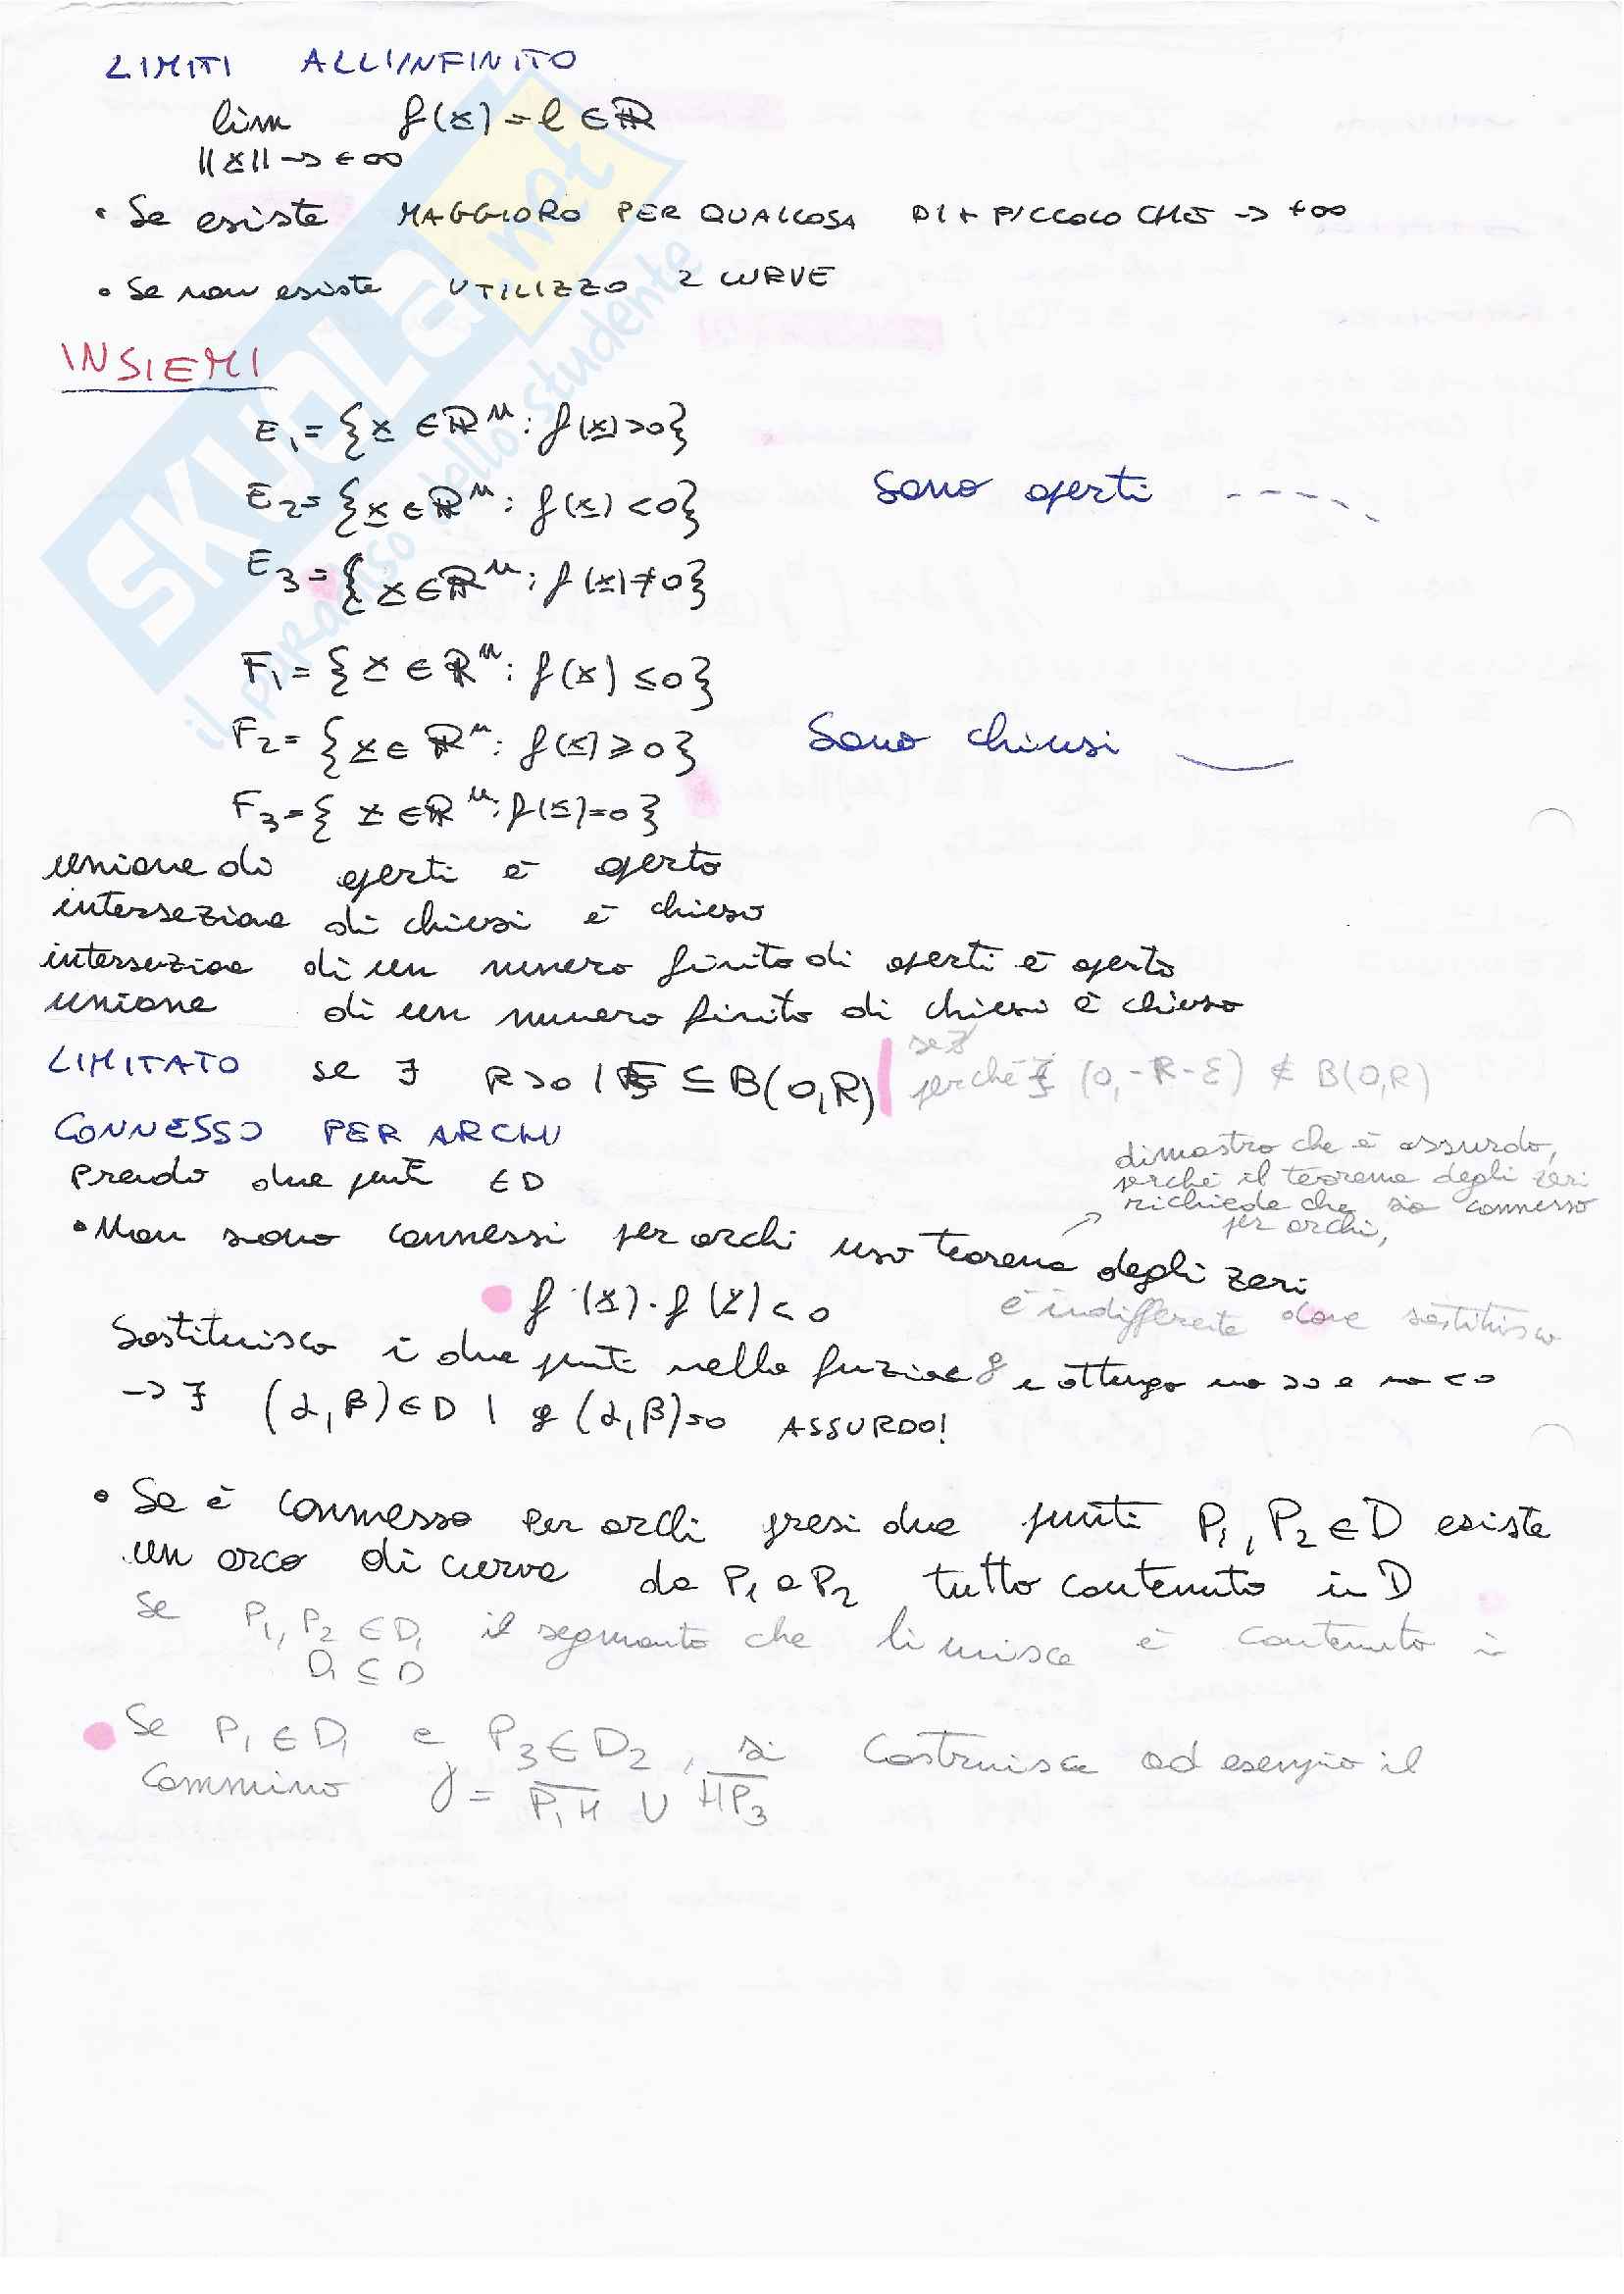 LIMITI ALL'INFINITO
lim f(x) = l ∈ R
||x|| -> +∞
• Se esiste MAGGIORO PER QUALCOSA DI + PICCOLO CHE -> +∞
• Se non esiste UTILIZZO 2 CURVE
INSIEMI
E₁ = {x ∈ Rⁿ : f(x) > 0}
E₂ = {x ∈ Rⁿ : f(x) < 0} Sono aperti ----
E₃ = {x ∈ Rⁿ : f(x) ≠ 0}
F₁ = {x ∈ Rⁿ : f(x) ≤ 0}
F₂ = {x ∈ Rⁿ : f(x) ≥ 0} Sono chiusi __
F₃ = {x ∈ Rⁿ : f(x) = 0}
unione di aperti è aperto
intersezione di chiusi è chiuso
intersezione di un numero finito di aperti è aperto
unione di un numero finito di chiusi è chiuso
se ∄
LIMITATO se ∃ R>0 | E ⊆ B(0,R) | perché ∄ (0,-R-ε) ∉ B(0,R)
CONNESSO PER ARCHI
Prendo due punti ∈ D
dimostro che è assurdo,
perché il teorema degli zeri
richiede che sia connesso
per archi,
• Non siano connessi per archi uso teorema degli zeri
f(x)·f(y) < 0
è indifferente dove sostituisco
Sostituisco i due punti nella funzione g e ottengo uno >0 e uno <0
-> ∃ (α,β) ∈ D | g(α,β)=0 ASSURDO!
• Se è connesso per archi presi due punti P₁, P₂ ∈ D esiste
un arco di curva da P₁ a P₂ tutto contenuto in D
Se P₁, P₂ ∈ D₁ il segmento che li unisce è contenuto in
D₁ ⊆ D
• Se P₁ ∈ D₁ e P₃ ∈ D₂, si costruisce ad esempio il
cammino γ = P₁H ∪ HP₃
SKUOLA.net
il paradiso dello studente